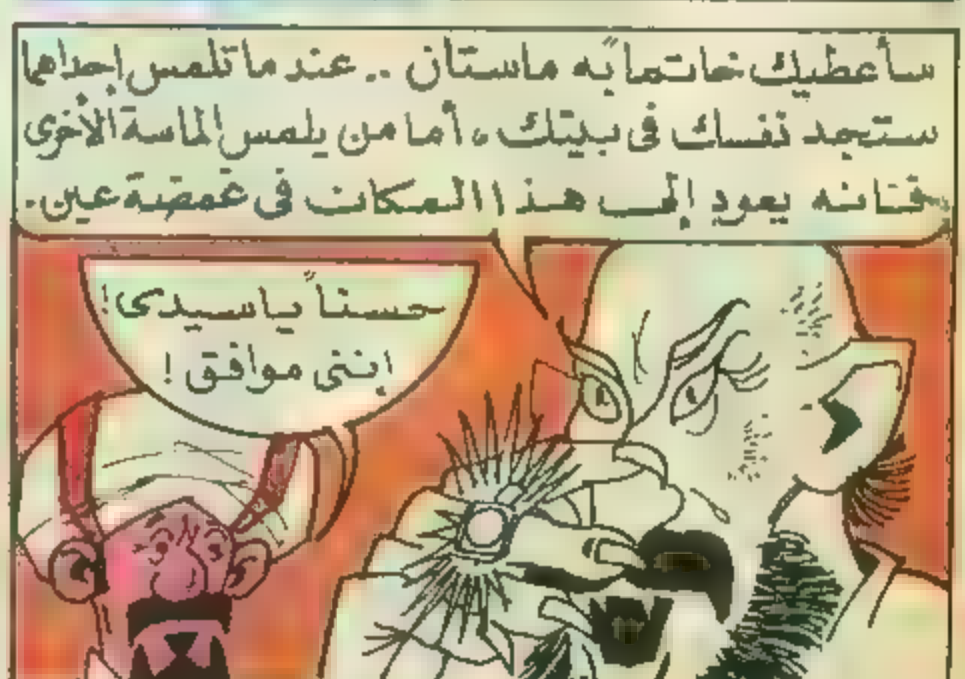 سأعطيك خاتماً به ماستان .. عندما تلمس إحداها
ستجد نفسك فى بيتك ، أما من يلمس الماسة الأخرى
فإنه يعود إلى هذا المكان فى غمضة عين .
حسناً ياسيدى !
إننى موافق !